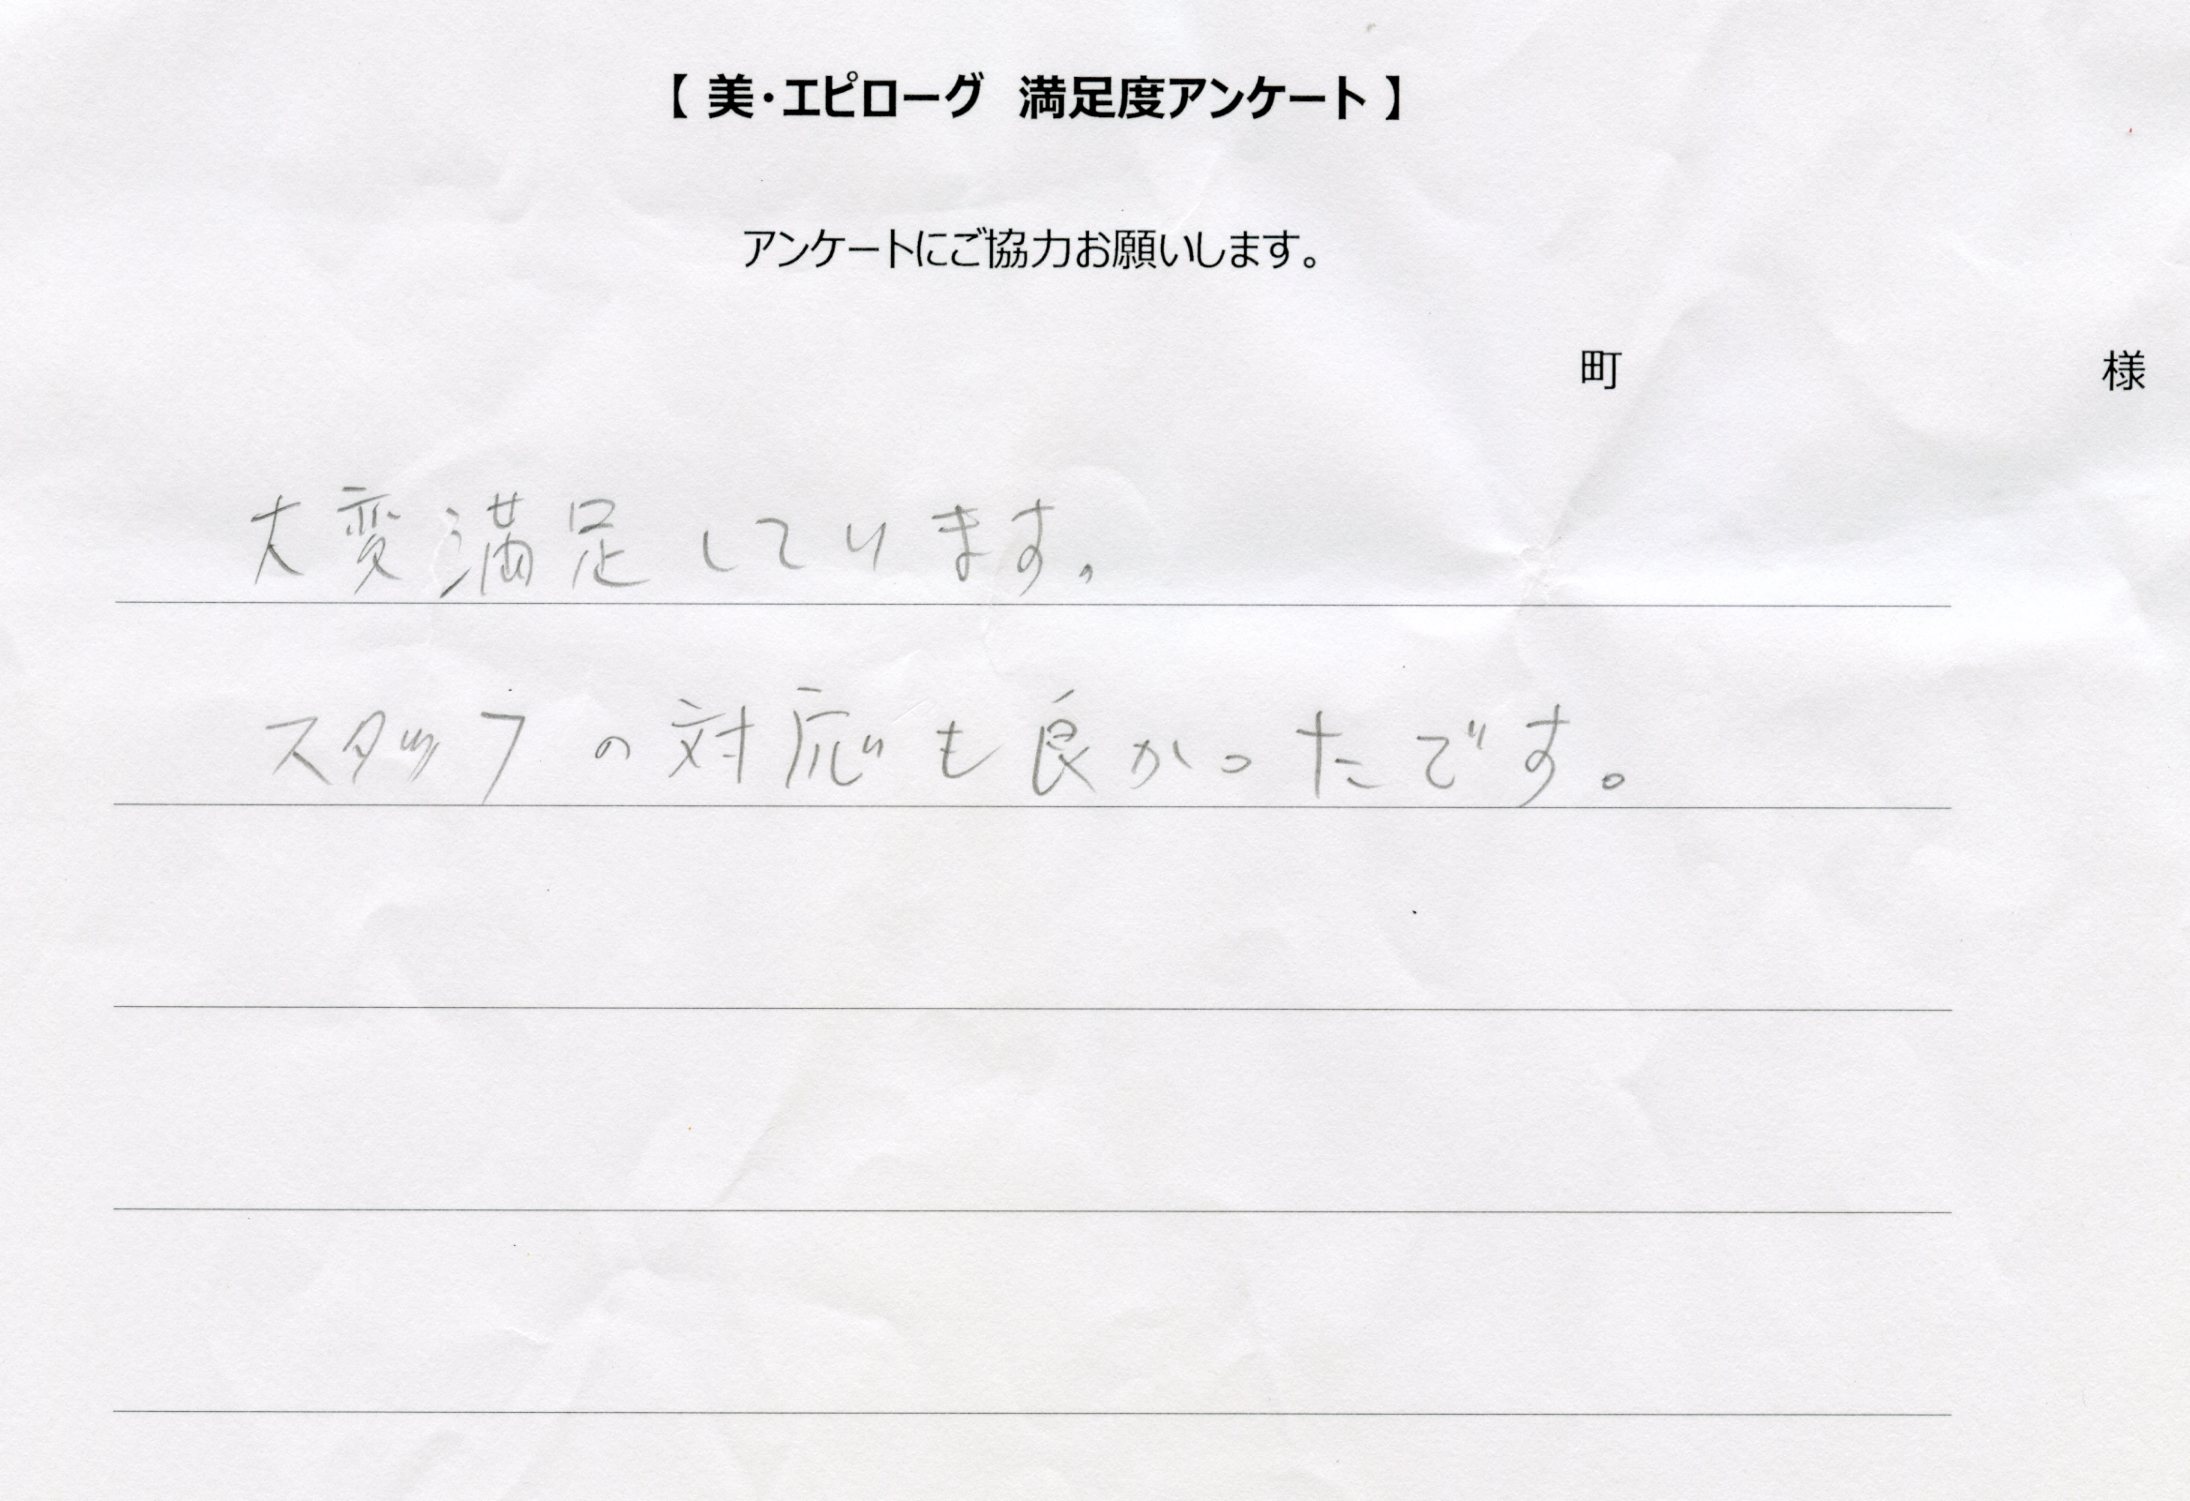 【 美・エピローグ 満足度アンケート 】
アンケートにご協力お願いします。
町 様
大変満足しています。
スタッフの対応も良かったです。